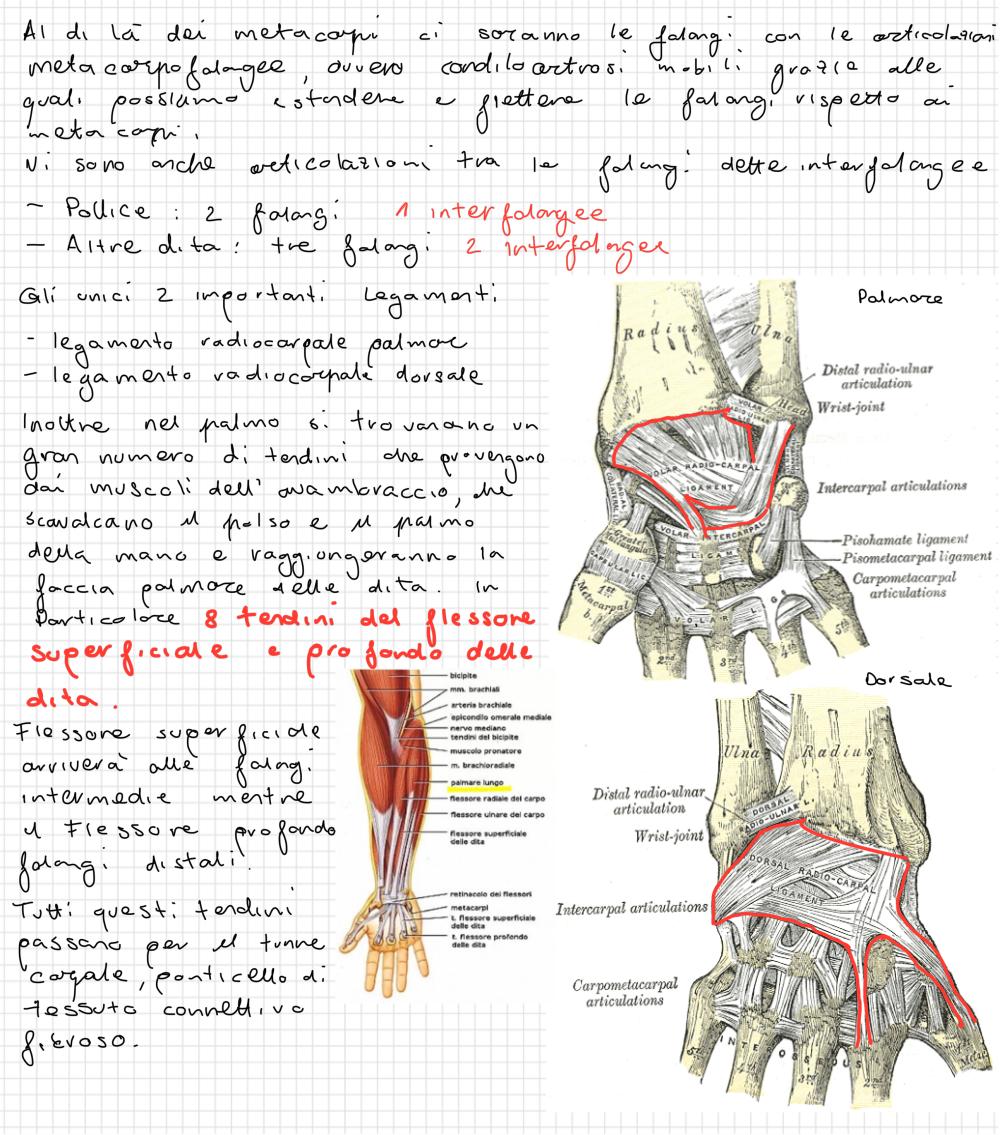 Al di là dei metacarpi ci saranno le falangi con le articolazioni
metacarpofalagee, ovvero condiloartrosi mobili grazie alle
quali possiamo estendere e flettere le falangi rispetto ai
metacarpi.
Vi sono anche articolazioni tra le falangi dette interfalangee
- Pollice : 2 falangi 1 interfalangee
- Altre dita : tre falangi 2 interfalangee
Gli unici 2 importanti Legamenti:
- legamento radiocarpale palmare
- legamento radiocarpale dorsale
Inoltre nel palmo si trovarano un
gran numero di tendini che provengono
dai muscoli dell'avambraccio, che
scavalcano il polso e il palmo
della mano e raggiungeranno la
faccia palmare delle dita. In
Particolare 8 tendini del flessore
superficiale e profondo delle
dita.
Flessore superficiale
arriverà alle falangi
intermedie mentre
il Flessore profondo
falangi distali.
Tutti questi tendini
passano per il tunne
carpale, ponticello di
tessuto connettivo
fibroso.
Palmare
Radius
Ulna
Distal radio-ulnar
articulation
VOLAR
RADIO-ULNAR
LIG.
Head
Wrist-joint
VOLAR RADIO-CARPAL
LIGAMENT
Intercarpal articulations
VOLAR INTERCARPAL
LIGAM
Greater
Multangular
CAPSULAR LIG
Pisohamate ligament
Pisometacarpal ligament
Carpometacarpal
articulations
1st
Metacarpal
b.
VOLAR
L. GS
2nd
3rd
5th
bicipite
mm. brachiali
arteria brachiale
epicondilo omerale mediale
nervo mediano
tendini del bicipite
muscolo pronatore
m. brachioradiale
palmare lungo
flessore radiale del carpo
flessore ulnare del carpo
flessore superficiale
delle dita
retinacolo dei flessori
metacarpi
t. flessore superficiale
delle dita
t. flessore profondo
delle dita
Dorsale
Ulna
Radius
Distal radio-ulnar
articulation
DORSAL
RADIO-ULNAR L.
Wrist-joint
DORSAL RADIO-CARPAL
LIGAMENT
Intercarpal articulations
Carpometacarpal
articulations
INTEROSSEOUS
5th
4th
3rd
2nd